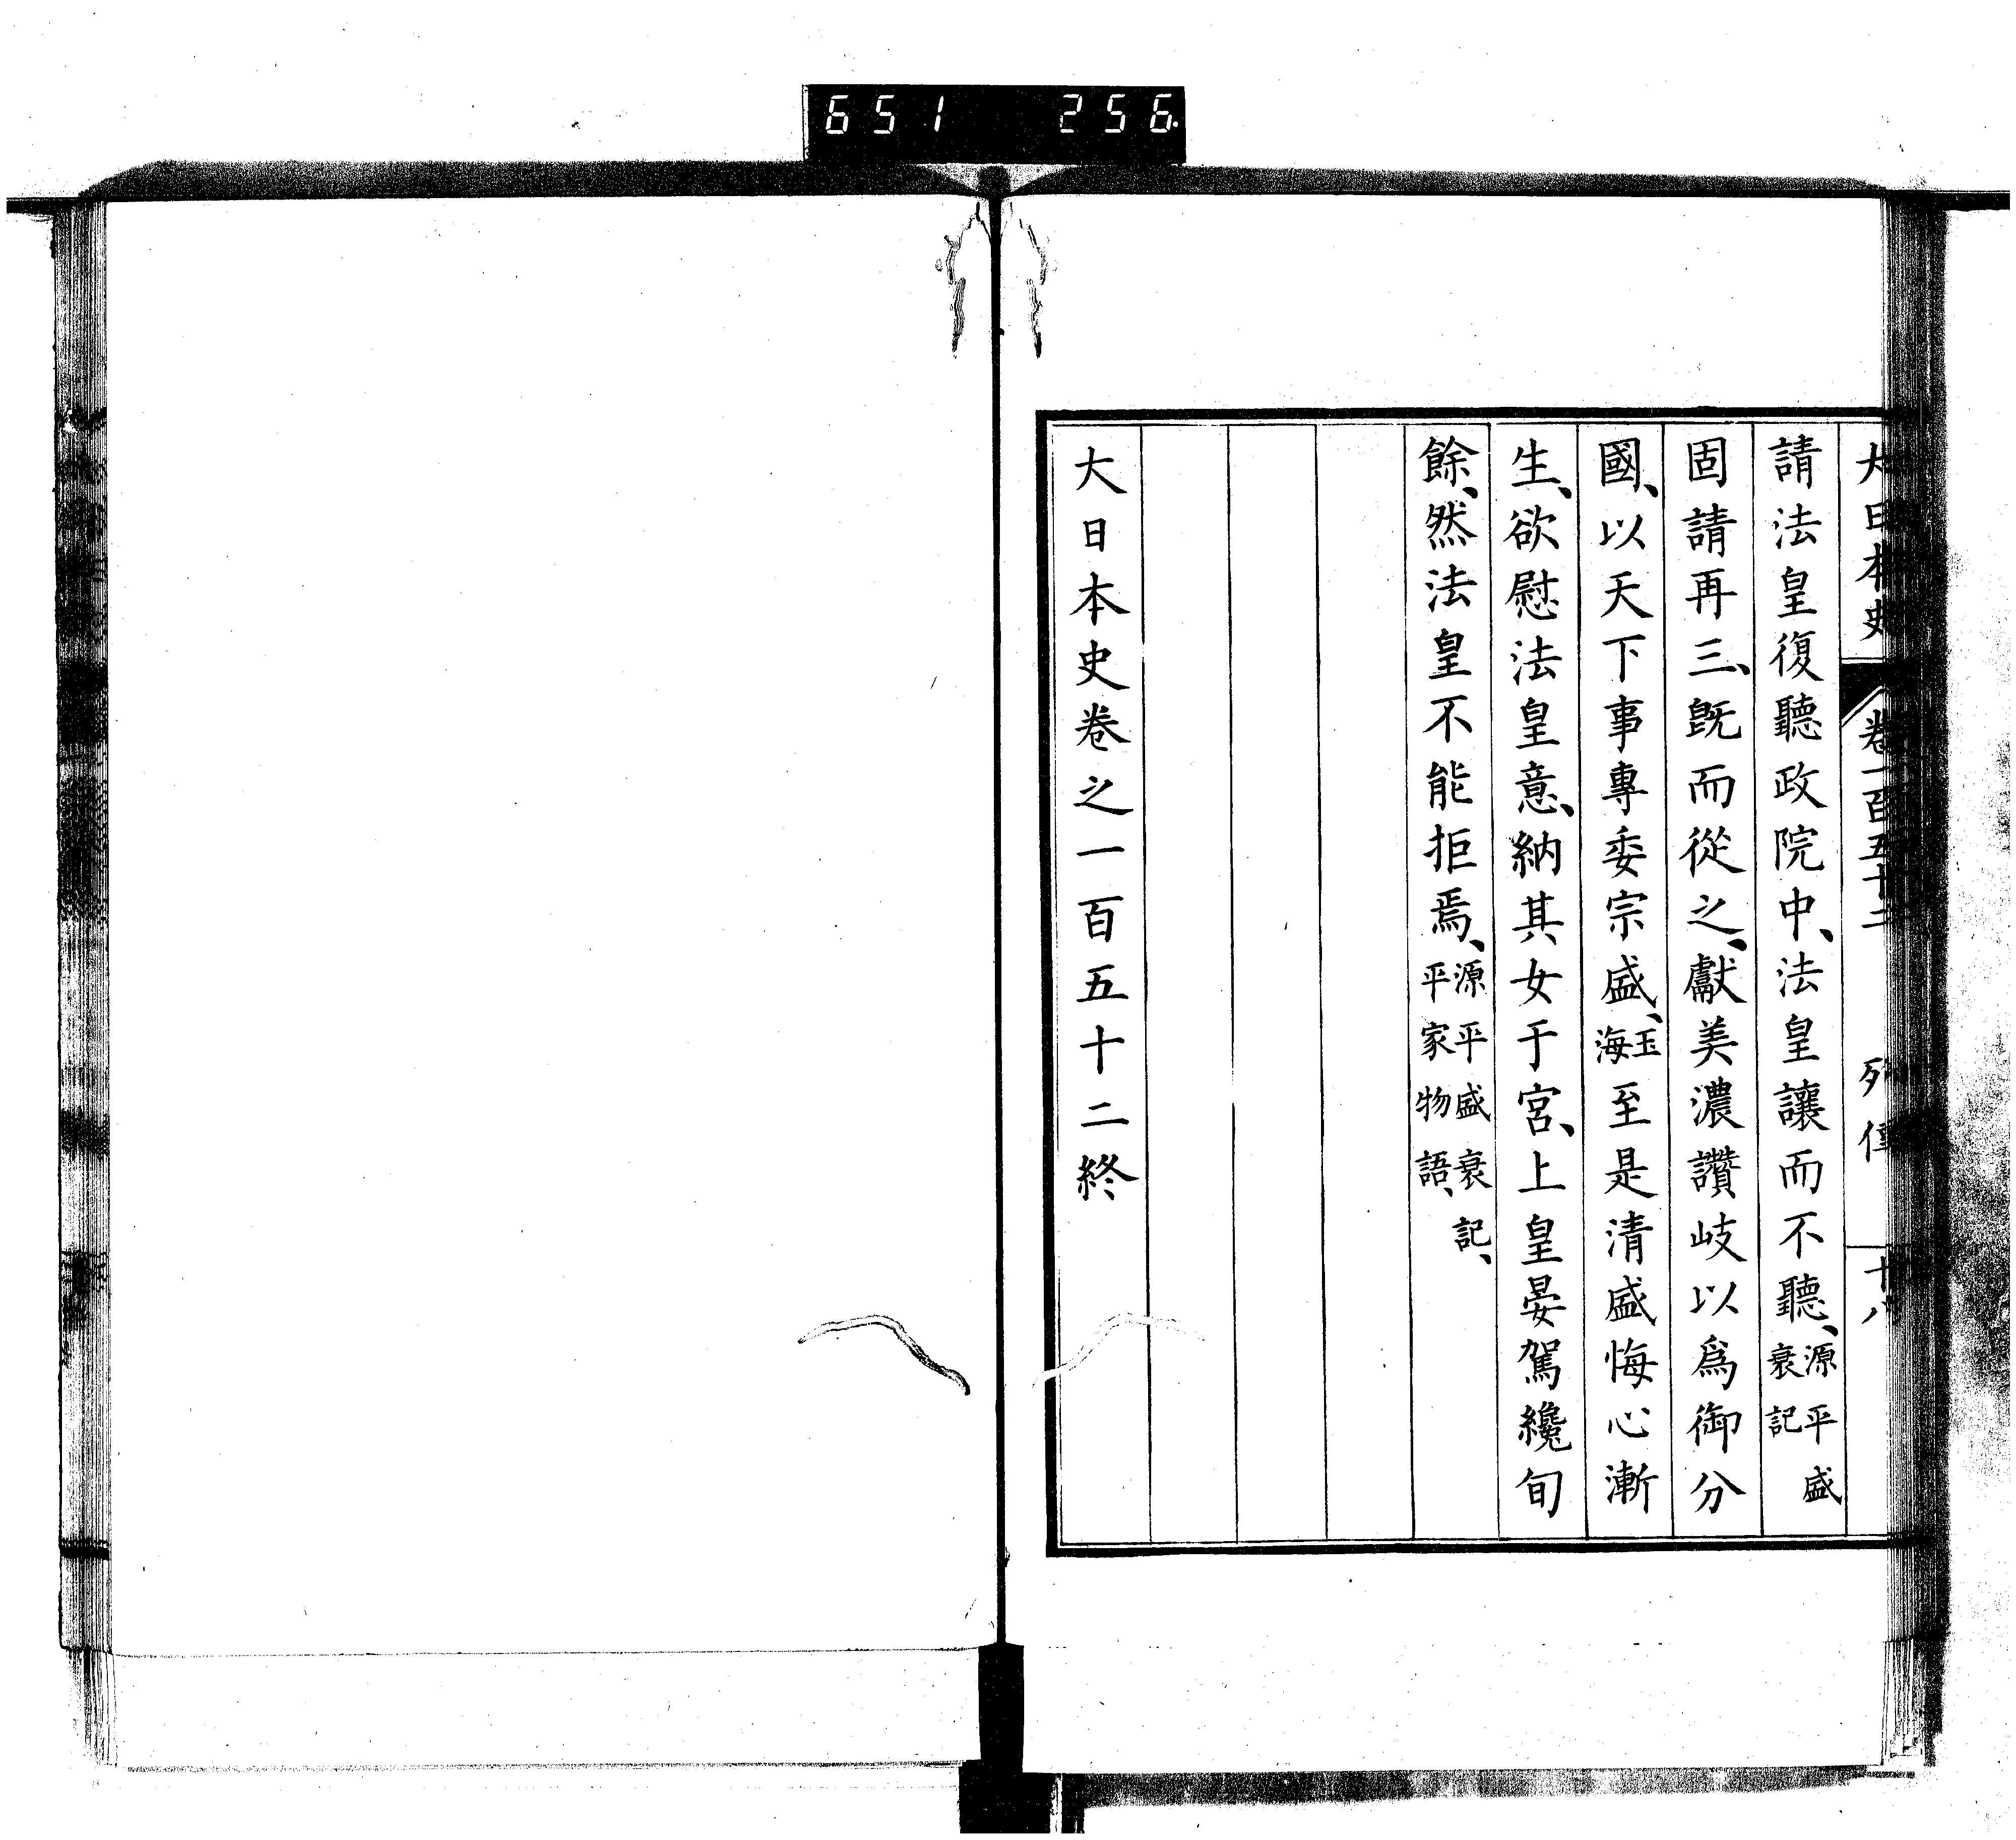 651 256
大日本史 卷一百五十二 列傳 十八
請法皇復聽政院中、法皇讓而不聽、源平盛衰記
固請再三、旣而從之、獻美濃讚岐以爲御分
國、以天下事專委宗盛、玉海至是清盛悔心漸
生、欲慰法皇意、納其女于宮、上皇晏駕纔旬
餘、然法皇不能拒焉、源平盛衰記、平家物語、
大日本史卷之一百五十二終